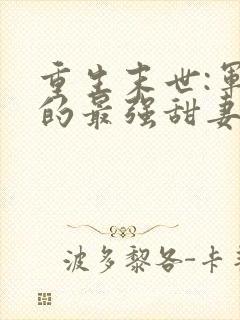 重生末世:
的最强甜妻
波多黎各-卡